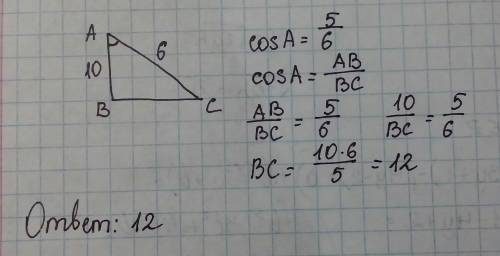 A
10
6
B
C
cosA = 5/6
cosA = AB/BC
AB/BC = 5/6    10/BC = 5/6
BC = 10·6/5 = 12
Ответ: 12